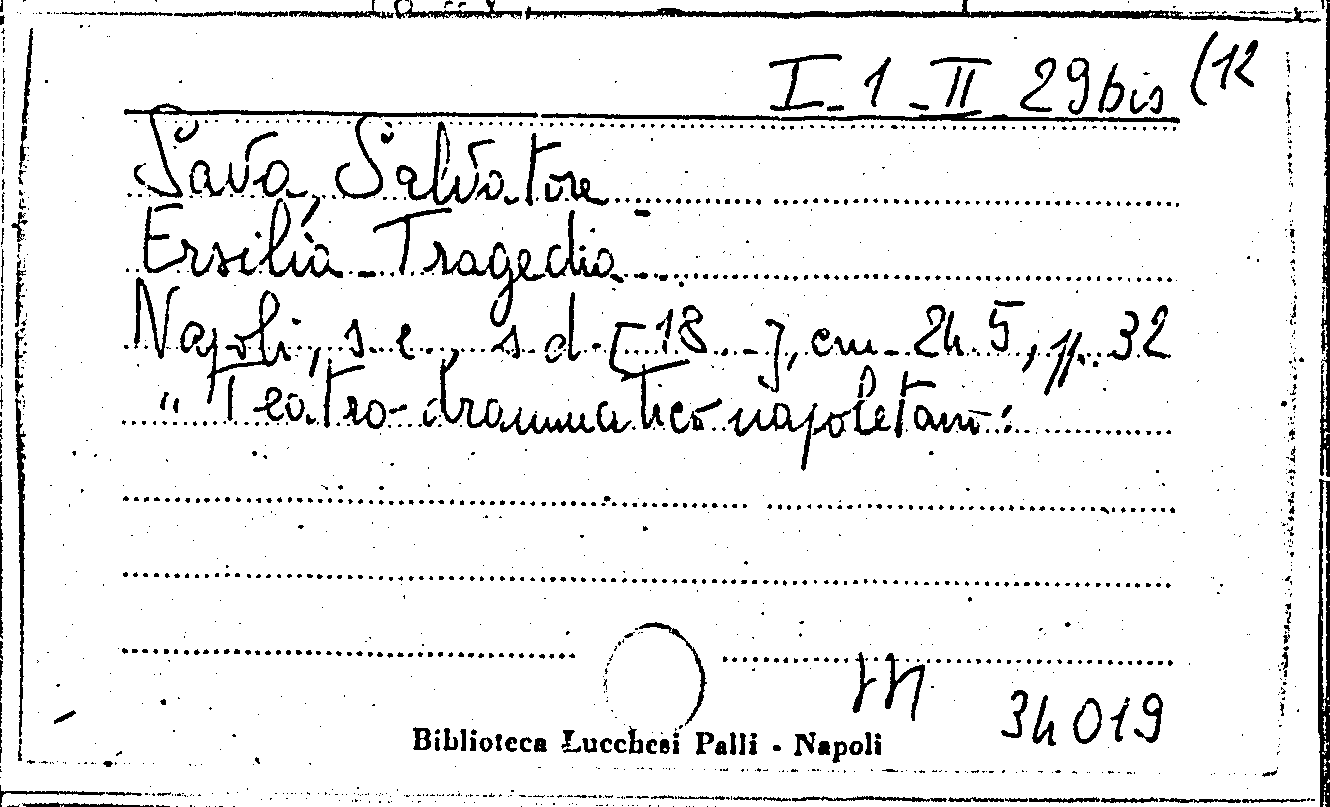 I-1-II 29bis (12
Sava, Salvatore -
Ersilia - Tragedia -
Napoli, s.e., s.d. [18..], cm. 24.5, pp. 32
"Teatro drammatico napoletano"
34019
Biblioteca Lucchesi Palli - Napoli